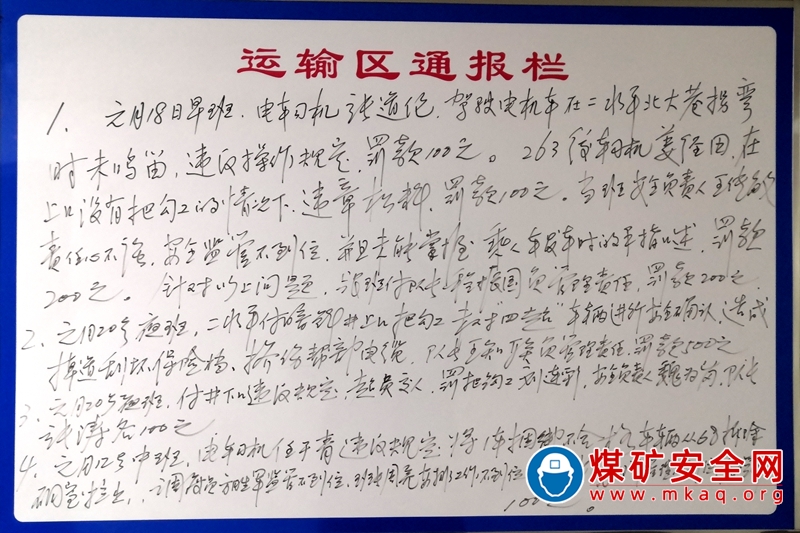 运输区通报栏
1、元月18日早班,电车司机张道伦,驾驶电机车在二水平北大巷拐弯
时未鸣笛,违反操作规定,罚款100元。263绞车司机姜经田,在
上口没有把勾工的情况下,违章松料,罚款100元。当班安全负责人王
责任心不强,安全监管不到位,并且未能掌握乘人车发车时的手指口述,罚款
200元。针对以上问题,跟班付队长负管理责任,罚款200元。
2、元月20号夜班,二水平付暗斜井上口把勾工未对"四超"车辆进行安全确认,造成
掉道刮坏保险档、挤伤帮部电缆,队长负管理责任,罚款500元
3、元月20号夜班,付井下口违反规定,超员乘人,罚把钩工,安全负责人魏,队长
张涛各100元
4、元月12号中班,电车司机任于青违反规定,将车辆从68拆除
硐室拉出,调度员监管不到位,班长周亮安排工作不到位
100元。
煤矿安全网
www.mkaq.org